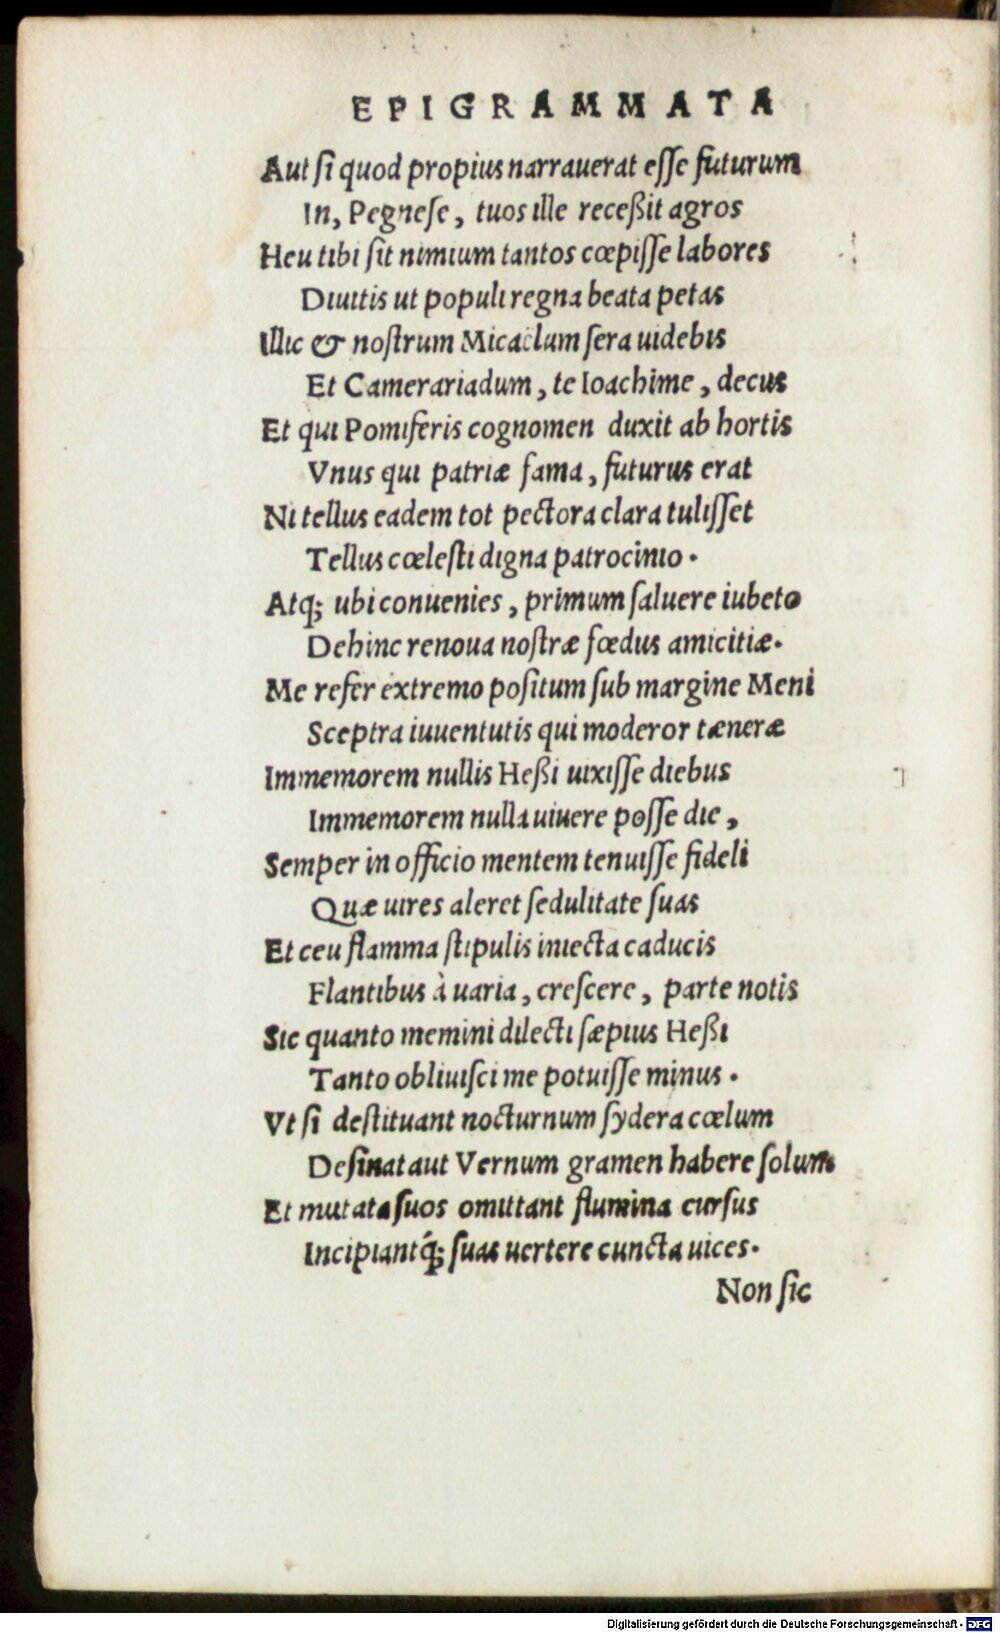 EPIGRAMMATA
Aut ſi quod propius narrauerat eſſe futurum
In, Pegneſe, tuos ille receßit agros
Heu tibi ſit nimium tantos cœpiſſe labores
Diuitis ut populi regna beata petas
Illic & noſtrum Micaelum ſera uidebis
Et Camerariadum, te Ioachime, decus
Et qui Pomiferis cognomen duxit ab hortis
Vnus qui patriæ fama, futurus erat
Ni tellus eadem tot pectora clara tuliſſet
Tellus cœleſti digna patrocinio.
Atq; ubi conuenies, primum ſaluere iubeto
Dehinc renoua noſtræ fœdus amicitiæ.
Me refer extremo poſitum ſub margine Meni
Sceptra iuuentutis qui moderor tæneræ
Immemorem nullis Heßi uixiſſe diebus
Immemorem nulla uiuere poſſe die,
Semper in officio mentem tenuiſſe fideli
Quæ uires aleret ſedulitate ſuas
Et ceu flamma ſtipulis iniecta caducis
Flantibus à uaria, creſcere, parte notis
Sic quanto memini dilecti ſæpius Heßi
Tanto obliuiſci me potuiſſe minus.
Vt ſi deſtituant nocturnum ſydera cœlum
Deſinat aut Vernum gramen habere ſolum
Et mutata ſuos omittant flumina curſus
Incipiantq́; ſuas uertere cuncta uices.
Non ſic
Digitalisierung gefördert durch die Deutsche Forschungsgemeinschaft - DFG